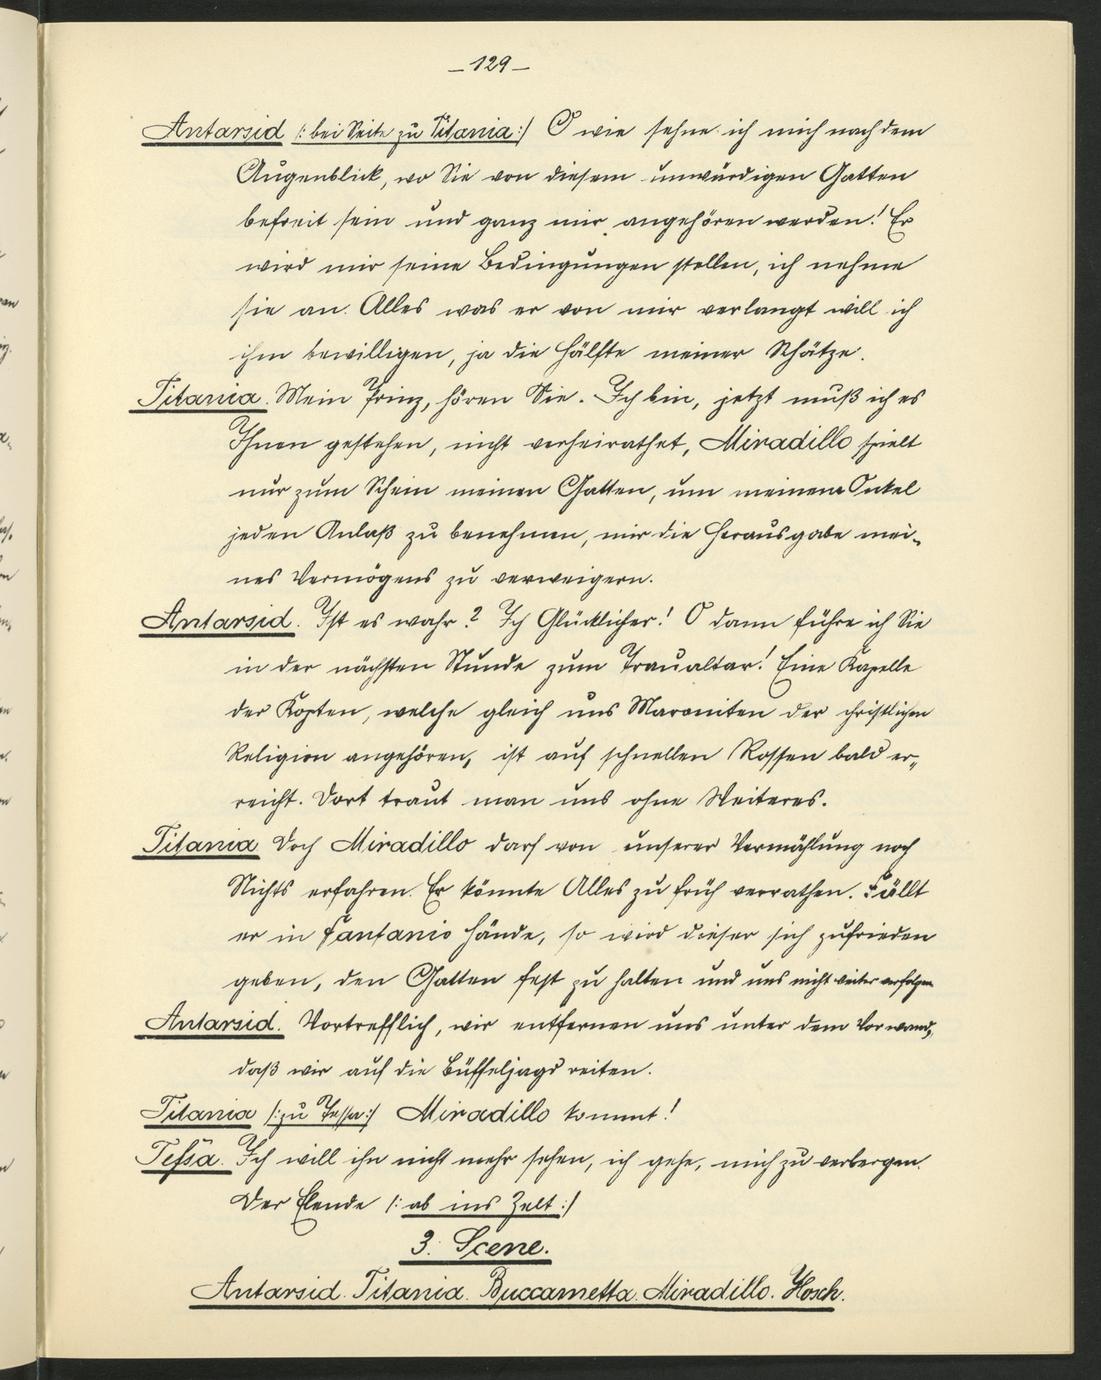 – 129 –
Antarsid /: bei Seite zu Titania :/ O wie sehne ich mich nach dem
Augenblick, wo Sie von diesem unwürdigen Gatten
befreit sein und ganz mir angehören werden! Er
wird mir seine Bedingungen stellen, ich nehme
sie an. Alles was er von mir verlangt will ich
ihm bewilligen, ja die Hälfte meiner Schätze.
Titania. Mein Prinz, hören Sie. Ich bin, jetzt muß ich es
Ihnen gestehen, nicht verheirathet, Miradillo spielt
nur zum Schein meinen Gatten, um meinem Onkel
jeden Anlaß zu benehmen, mir die Herausgabe mei-
nes Vermögens zu verweigern.
Antarsid. Ist es wahr? Ich Glücklicher! O dann führe ich Sie
in der nächsten Stunde zum Traualtar! Eine Kapelle
der Kopten, welche gleich uns Maroniten der christlichen
Religion angehören, ist auf schnellen Rossen bald er-
reicht. Dort traut man uns ohne Weiteres.
Titania Doch Miradillo darf von unserer Vermählung noch
Nichts erfahren. Er könnte Alles zu früh verrathen. Fällt
er in Fantanio Hände, so wird dieser sich zufrieden
geben, den Gatten fest zu halten und uns nicht weiter verfolgen
Antarsid. Vortrefflich, wir entfernen uns unter dem Vorwand,
daß wir auf die Büffeljagd reiten.
Titania /: zu Tessa :/ Miradillo kommt!
Tessa. Ich will ihn nicht mehr sehen, ich gehe, mich zu verbergen.
Der Elende /: ab ins Zelt :/
3. Scene.
Antarsid. Titania. Buccametta. Miradillo. Hosch.